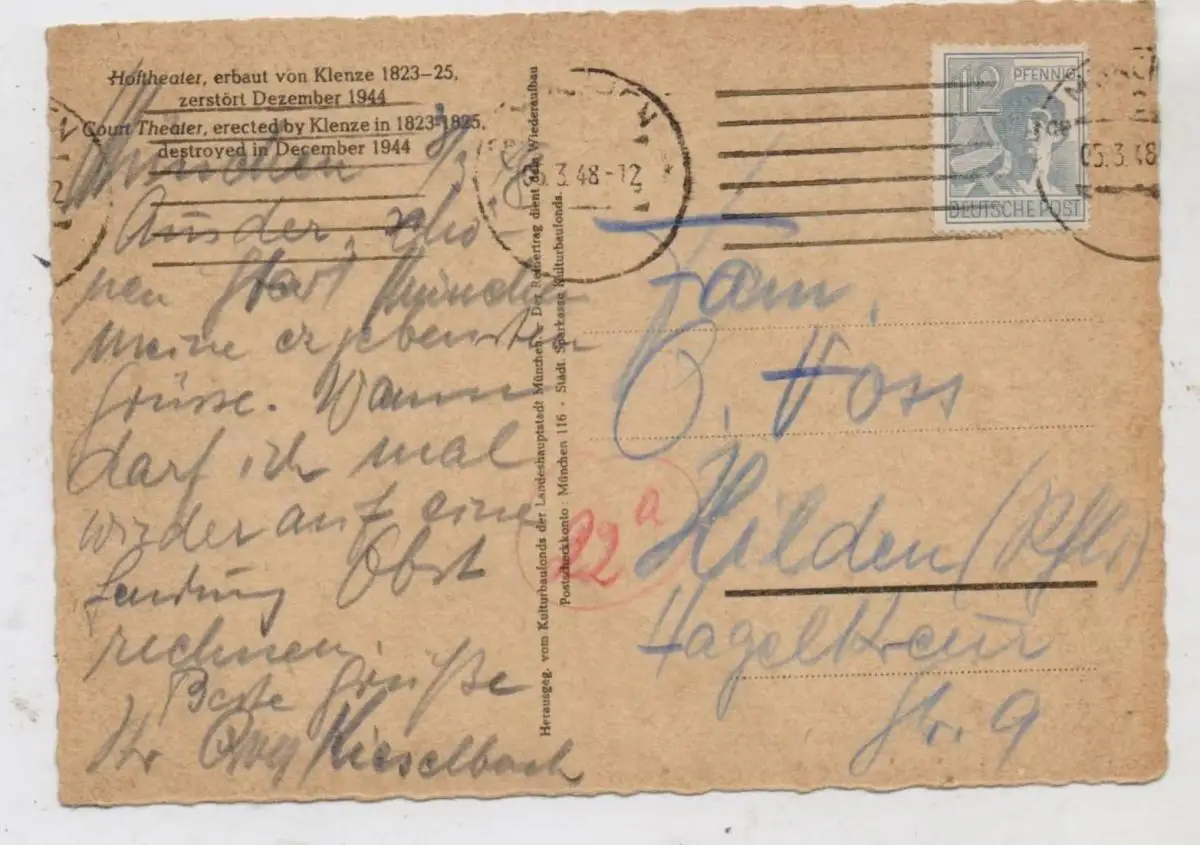 Hoftheater, erbaut von Klenze 1823-25,
zerstört Dezember 1944
Court Theater, erected by Klenze in 1823-1825,
destroyed in December 1944
München
Aus der schö-
nen Stadt München
meine ergebensten
Grüsse. Wann
darf ich mal
wieder auf eine
Sendung Obst
rechnen.
Beste Grüße
Ihr Kieselbach
Herausgeg. vom Kulturbaufonds der Landeshauptstadt München. Der Reinertrag dient dem Wiederaufbau
Postscheckkonto: München 116 · Städt. Sparkasse Kulturbaufonds.
3.48-12
12 PFENNIG
DEUTSCHE POST
05.3.48
Fam.
O. Voss
22a
Hilden (Rhld)
Hagelkreuz
Str. 9